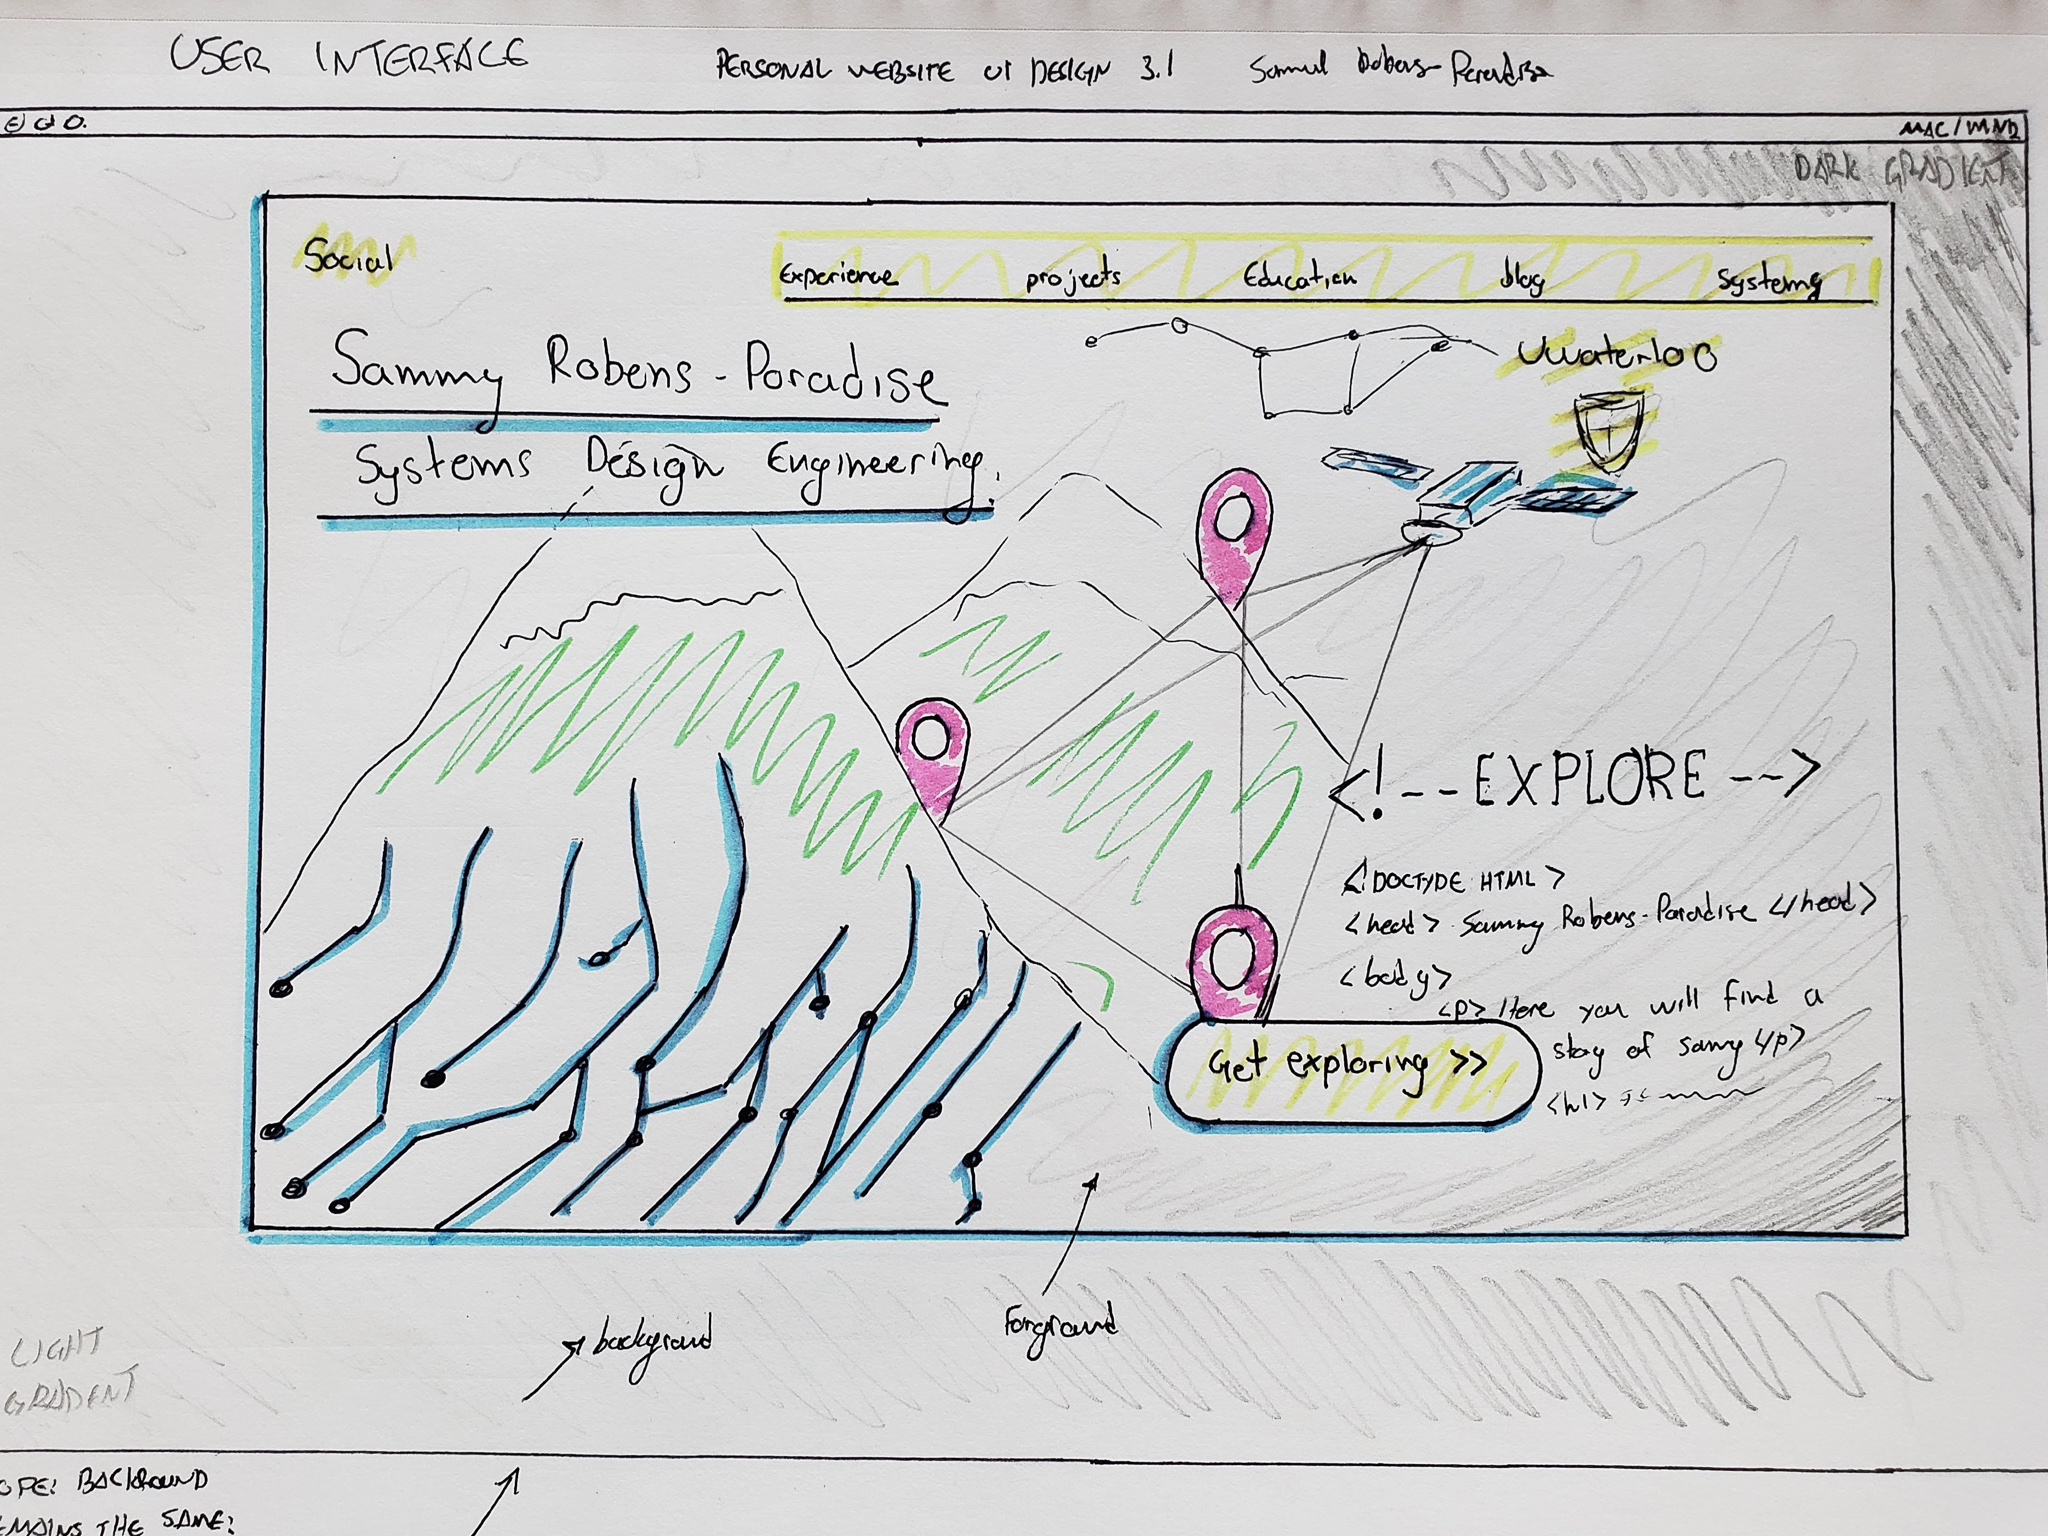 USER INTERFACE
PERSONAL WEBSITE UI DESIGN 3.1
Samul Robens-Paradise
MAC/WND
DARK GRADIENT
Social
Experience projects Education blog Systems
Sammy Robens-Paradise
Systems Design Engineering.
Uwaterloo
<!--EXPLORE-->
<!DOCTYDE HTML>
<head> Sammy Robens-Paradise </head>
<body>
<p> Here you will find a
story of samy </p>
<h1>
Get exploring >>
background
Forground
LIGHT
GRADENT
OPE: BACKROUND
EMAINS THE SAME: